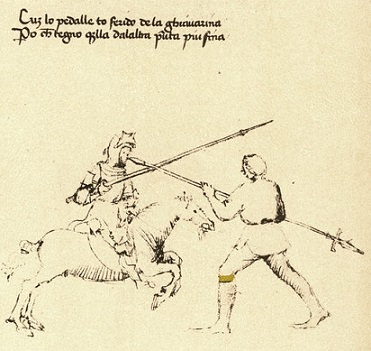 Cuȝ lo pedalle to ferido de la ghiavarina
Po ch tegno q̄lla dalaltra pūta piu fina